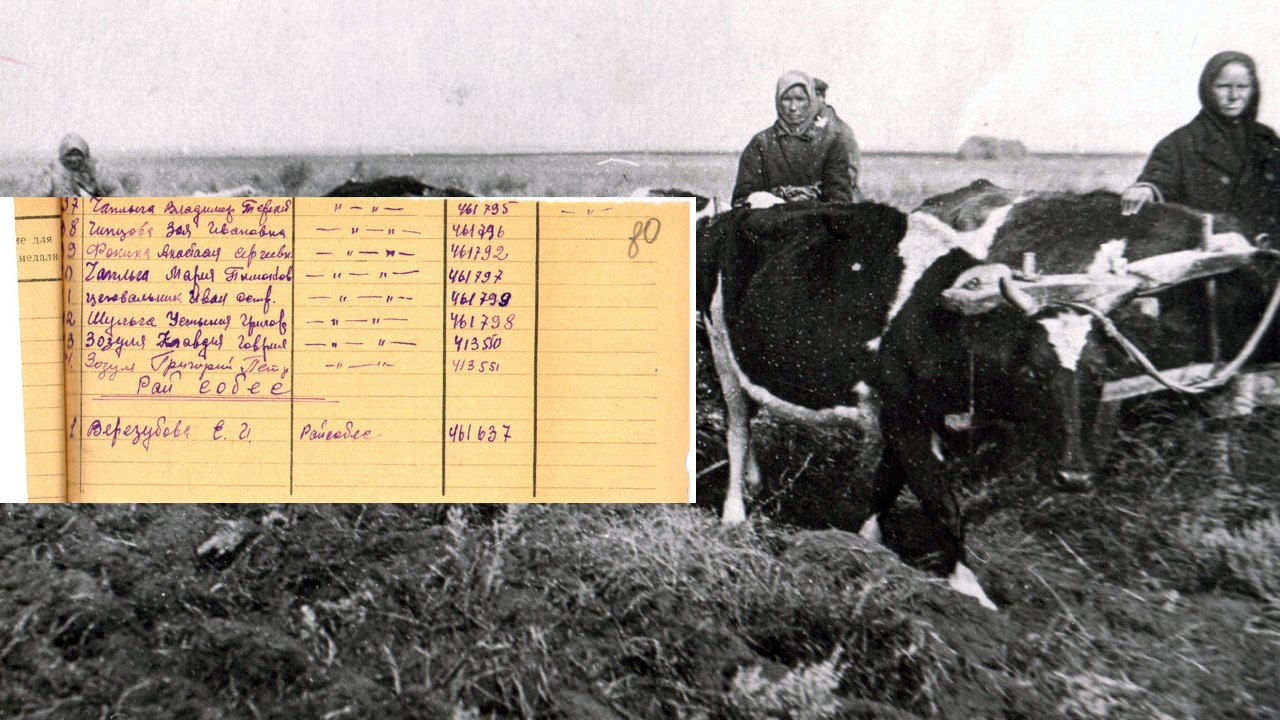 80
ие для
медали
37 Чаплыга Владимир Терент " — " — 461795 — " —
38 Чипцова Зоя Ивановна — " — " — 461796
9 Фокина Анастасия Сергеевн — " — " — 461792
0 Чаплыга Мария Тимофеев — " — " — 461797
1 Цаловальник Иван — " — " — 461799
2 Шульга Устинья — " — " — 461798
3 Зозуля Клавдия Гаврил — " — " — 413550
4. Зозуля Григорий Петр — " — " — 413551
Рай собес
1 Верезубова Е. И. Райсобес. 461637